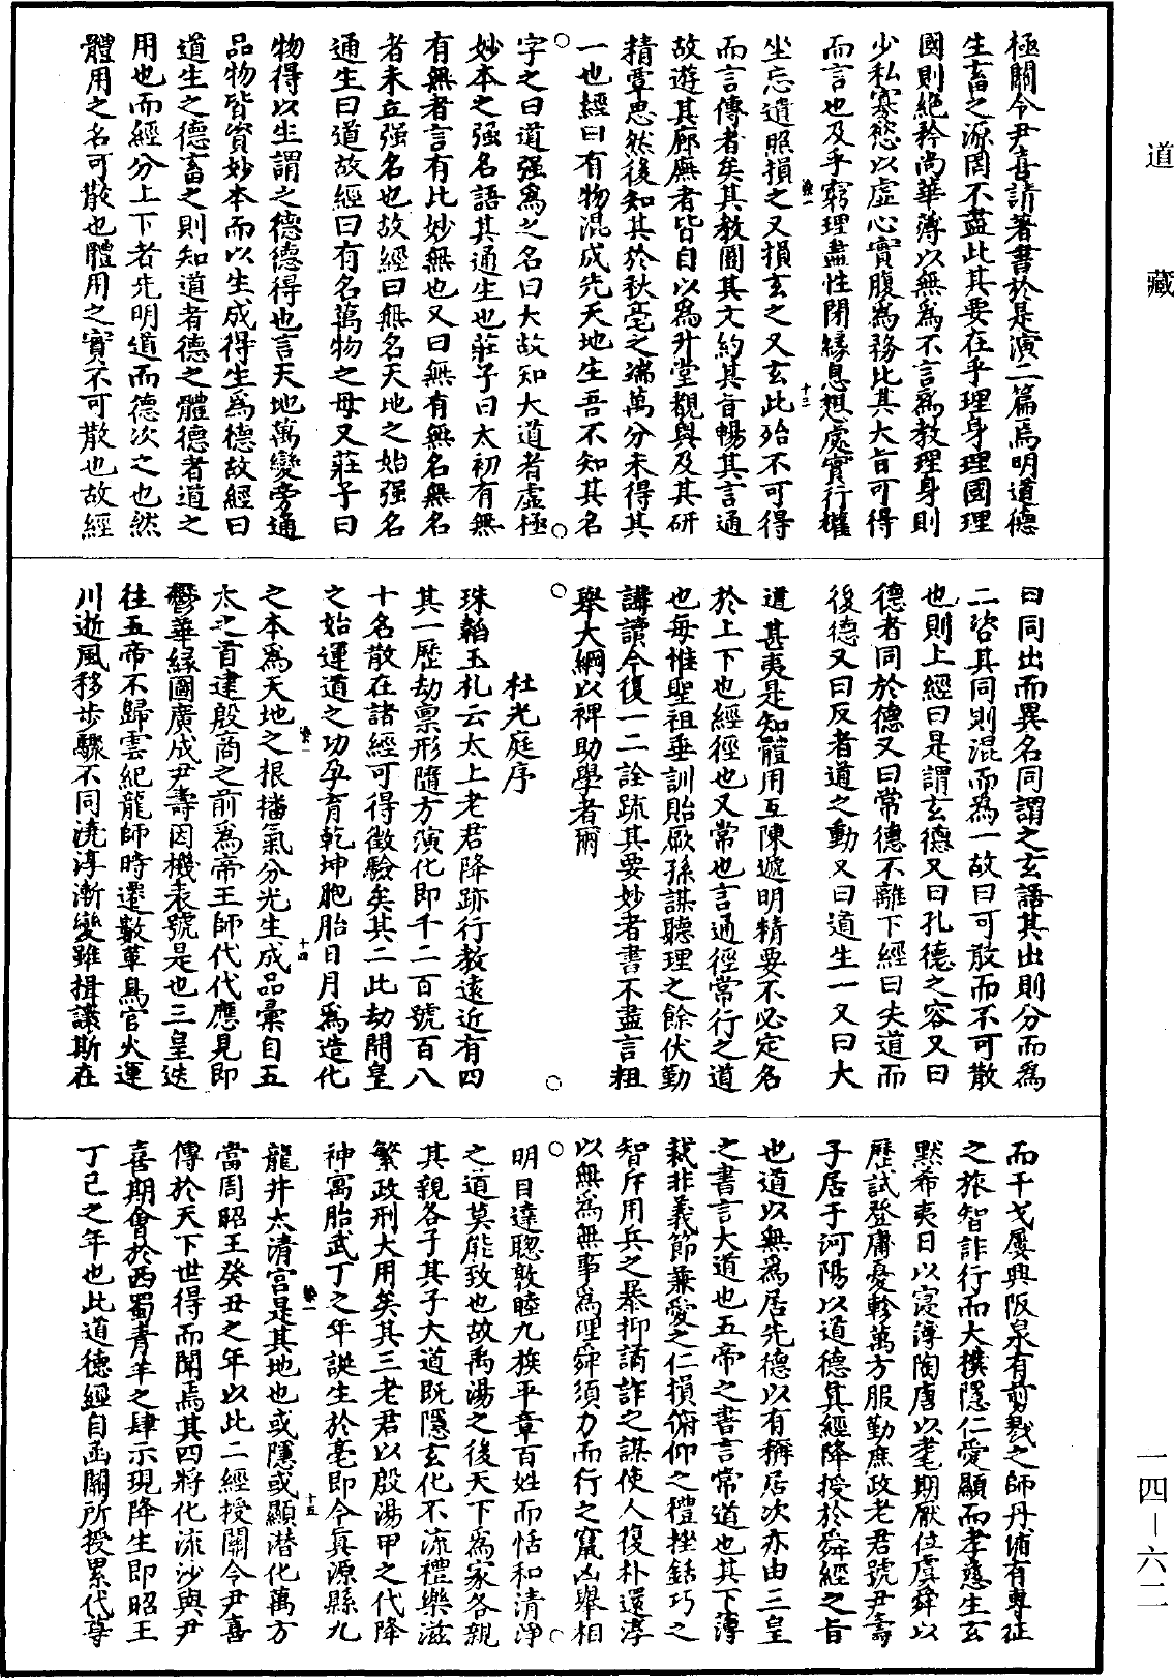 道藏
極關令尹喜請著書於是演二篇焉明道德
生畜之源罔不盡此其要在乎理身理國理
國則絕矜尚華薄以無為不言為教理身則
少私寡慾以虛心實腹為務比其大旨可得
而言也及乎窮理盡性閉緣息想處實行權
坐忘遺照損之又損玄之又玄此殆不可得
而言傳者矣其教圓其文約其旨暢其言通
故遊其廊廡者皆自以為升堂覩奧及其研
精覃思然後知其於秋毫之端萬分未得其
一也經曰有物混成先天地生吾不知其名
字之曰道强為之名曰大故知大道者虛極
妙本之强名語其通生也莊子曰太初有無
有無者言有比妙無也又曰無有無名無名
者未立强名也故經曰無名天地之始强名
通生曰道故經曰有名萬物之母又莊子曰
物得以生謂之德德得也言天地萬變旁通
品物皆資妙本而以生成得生為德故經曰
道生之德畜之則知道者德之體德者道之
用也而經分上下者先明道而德次之也然
體用之名可散也體用之實不可散也故經
曰同出而異名同謂之玄語其出則分而為
二咨其同則混而為一故曰可散而不可散
也則上經曰是謂玄德又曰孔德之容又曰
德者同於德又曰常德不離下經曰失道而
後德又曰反者道之動又曰道生一又曰大
道甚夷是知體用互陳遞明精要不必定名
於上下也經徑也又常也言通徑常行之道
也每惟聖祖垂訓貽厥孫謀聽理之餘伏勤
講讀今復一二詮疏其要妙者書不盡言粗
舉大綱以裨助學者爾
杜光庭序
珠韜玉札云太上老君降跡行教遠近有四
其一歷劫禀形隨方演化即千二百號百八
十名散在諸經可得徵驗矣其二此劫開皇
之始運道之功孕育乾坤胞胎日月為造化
之本為天地之根播氣分光生成品彙自五
太之首逮殷商之前為帝王師代代應見即
鬱華緣圖廣成尹壽因機表號是也三皇迭
往五帝不歸雲紀龍師時還數革鳥官火運
川逝風移步驟不同澆淳漸變雖揖讓斯在
而干戈屢興阪泉有剪戮之師丹浦有專征
之旅智詐行而大樸隱仁愛顯而孝慈生玄
默希夷日以寖薄陶唐以耄期厭位虞舜以
歷試登庸憂軫萬方服勤庶政老君號尹壽
子居于河陽以道德真經降授於舜經之旨
也道以無為居先德以有稱居次亦由三皇
之書言大道也五帝之書言常道也其下薄
裁非義節兼愛之仁損俯仰之禮挫銛巧之
智斥用兵之暴抑譎詐之謀使人復朴還淳
以無為無事為理舜須力而行之竄凶舉相
明目達聰敦睦九族平章百姓而恬和清淨
之道莫能致也故禹湯之後天下為家各親
其親各子其子大道既隱玄化不流禮樂滋
繁政刑大用矣其三老君以殷湯甲之代降
神寓胎武丁之年誕生於亳即今真源縣九
龍井太清宮是其地也或隱或顯潛化萬方
當周昭王癸丑之年以此二經授關令尹喜
傳於天下世得而聞焉其四將化流沙與尹
喜期會於西蜀青羊之肆示現降生即昭王
丁巳之年也此道德經自函關所授累代尊
一四—六二